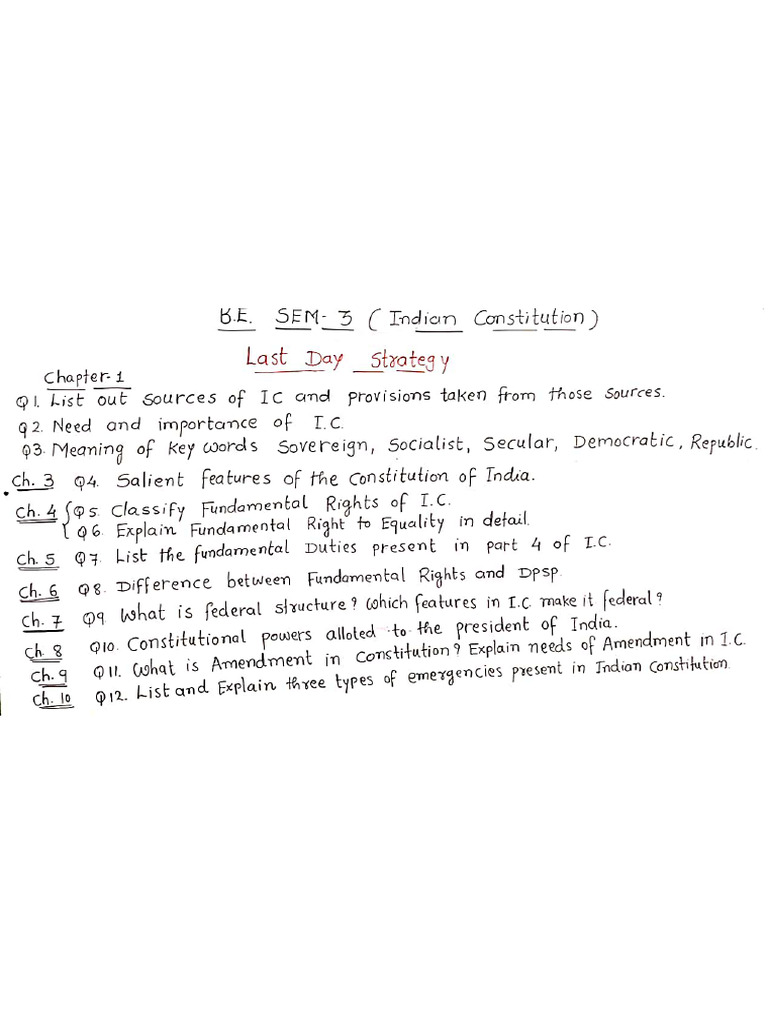 B.E. SEM-3 (Indian Constitution)
Last Day Strategy
Chapter-1
Q1. List out sources of IC and provisions taken from those sources.
Q2. Need and importance of I.C.
Q3. Meaning of key words Sovereign, Socialist, Secular, Democratic, Republic.
Ch. 3 Q4. Salient features of the Constitution of India.
Ch. 4 Q5. Classify Fundamental Rights of I.C.
Q6. Explain Fundamental Right to Equality in detail.
Ch. 5 Q7. List the fundamental Duties present in part 4 of I.C.
Ch. 6 Q8. Difference between Fundamental Rights and DPSP.
Ch. 7 Q9. What is federal structure? Which features in I.C. make it federal?
Ch. 8 Q10. Constitutional powers alloted to the president of India.
Ch. 9 Q11. What is Amendment in Constitution? Explain needs of Amendment in I.C.
Ch. 10 Q12. List and Explain three types of emergencies present in Indian Constitution.